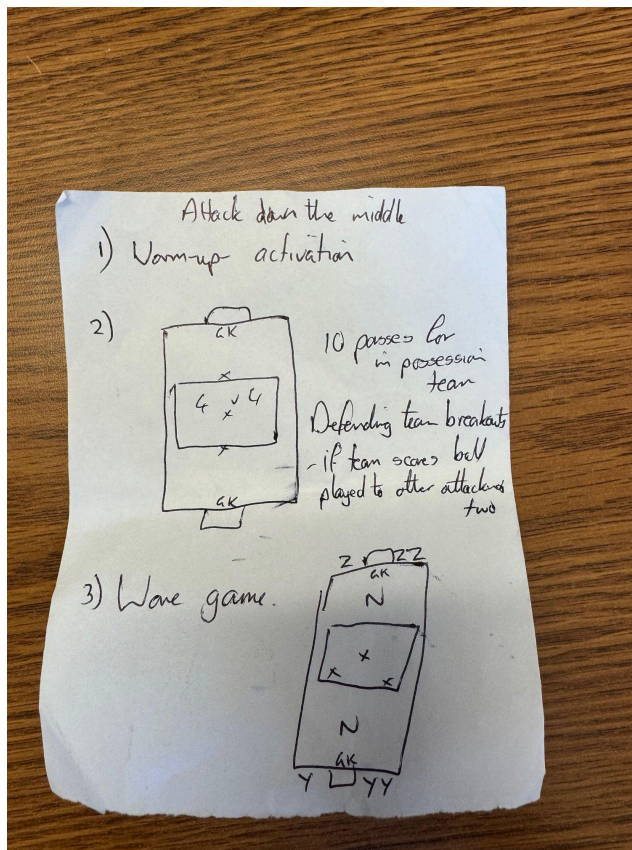 Attack down the middle
1) Warm-up activation
2)
GK
10 passes for
in possession
team
x
4 v 4
x
x
Defending team breakouts
- if team scores ball
played to other attacking
two
GK
3) Wave game.
Z ZZ
GK
2
x
x x
2
GK
Y YY